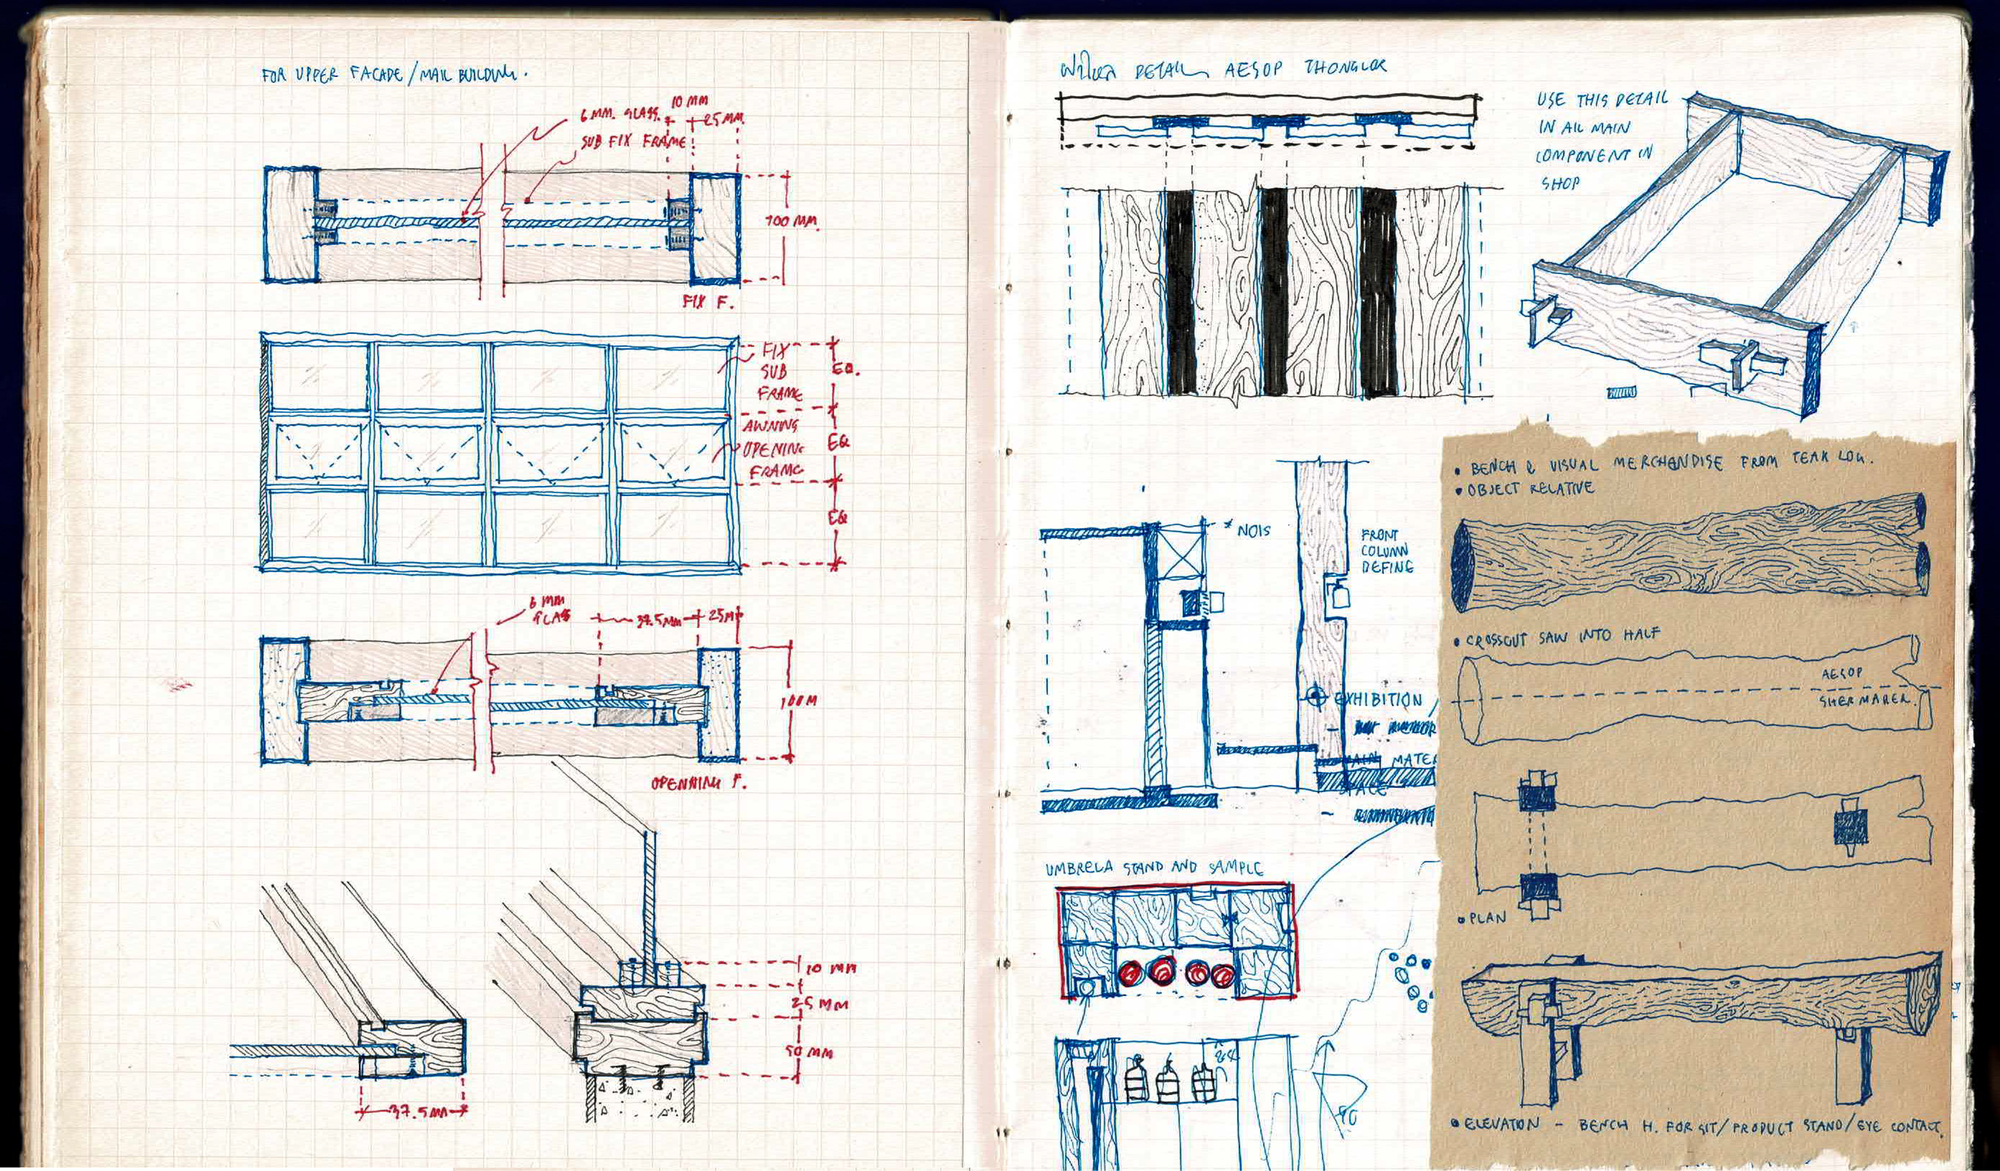 FOR UPPER FACADE/MAIL BUILDING.
6 MM. GLASS.
10 MM
25 MM.
SUB FIX FRAME
100 MM.
FIX F.
FIX
SUB
FRAME
EQ.
AWNING
OPENING
FRAME
EQ
EQ
6 MM
GLASS
37.5MM
25M
100 M
OPENNING F.
10 MM
25 MM
50 MM
37.5MM
DETAIL AESOP THONGLOR
USE THIS DETAIL
IN ALL MAIN
COMPONENT IN
SHOP
* NOIS
FRONT
COLUMN
DEFING
EXHIBITION /
MAIN MATE
SPACE
UMBRELA STAND AND SAMPLE
• BENCH & VISUAL MERCHANDISE FROM TEAK LOG.
• OBJECT RELATIVE
• CROSSCUT SAW INTO HALF
AESOP
SHERMAKER.
• PLAN
• ELEVATION - BENCH H. FOR SIT/PRODUCT STAND/EYE CONTACT.